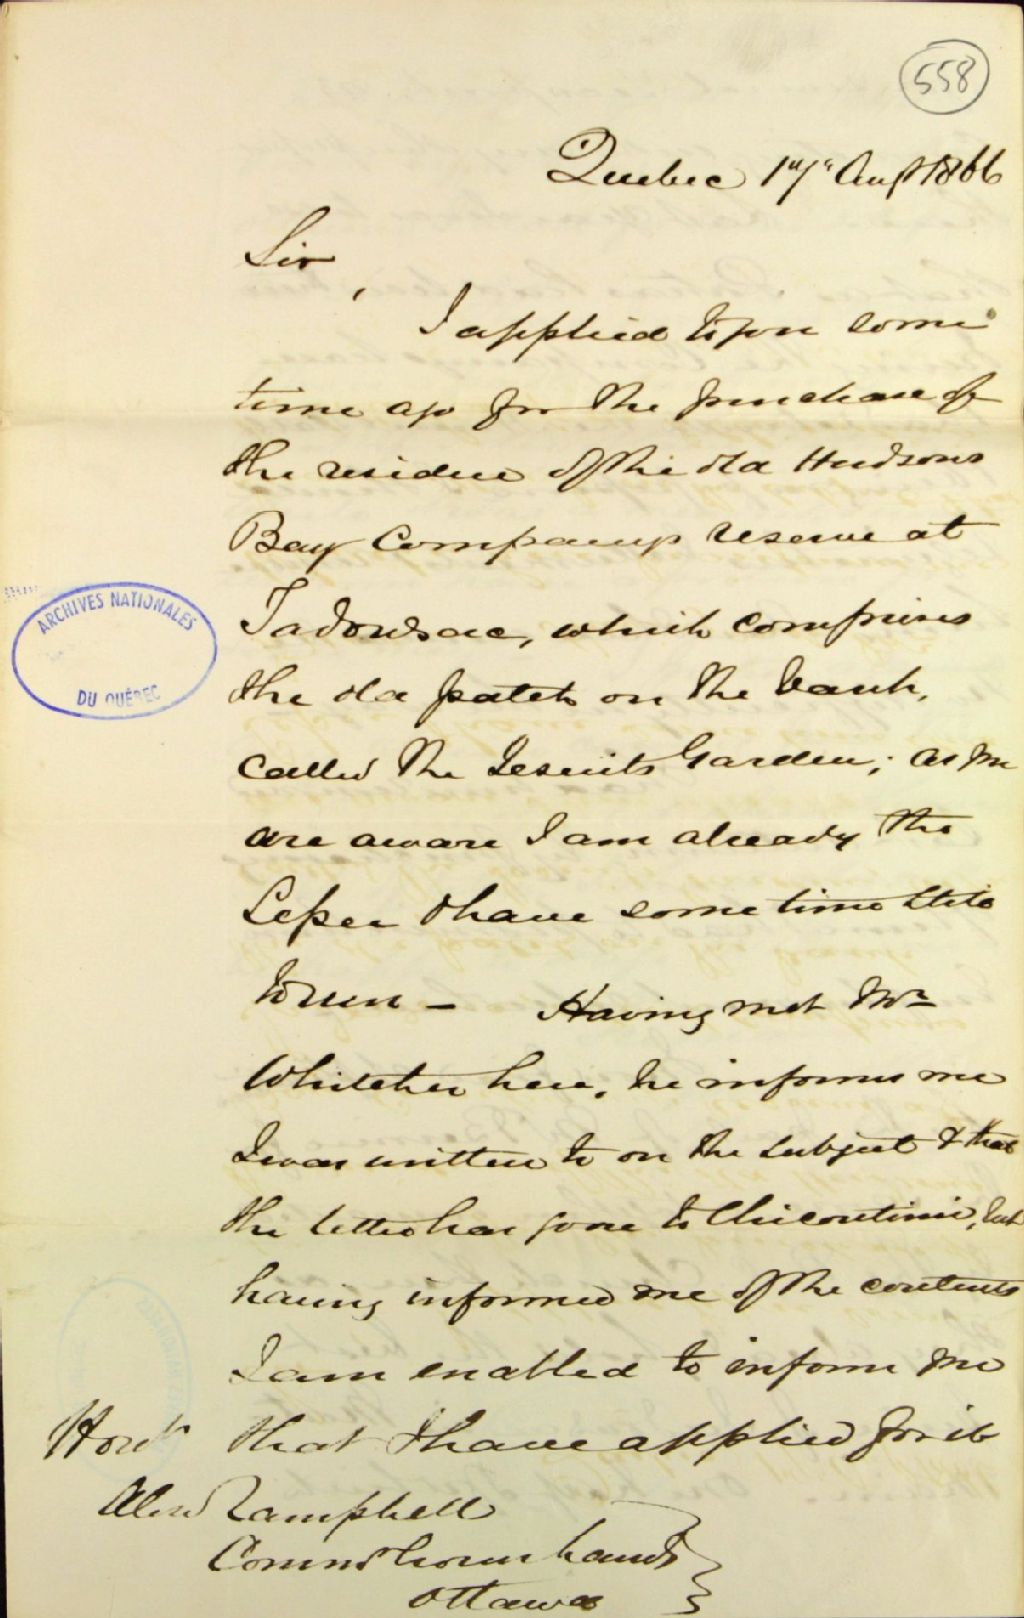 558
Quebec 17th Augt 1866
Sir,
I applied to you some
time ago for the purchase of
the residue of the old Hudsons
Bay Company reserve at
Tadousac, which comprises
the old patch on the bank,
called the Jesuits Garden; as you
are aware I am already the
Lessee & have some time still
to run — Having met Mr
Whitcher here, he informs me
I was written to on the subject & that
the letter has gone to Chicoutimi, but
having informed me of the contents
I am enabled to inform you
that I have applied for it
Honble
Alexr Campbell
Commr Crown Lands
Ottawa
ARCHIVES NATIONALES
DU QUÉBEC